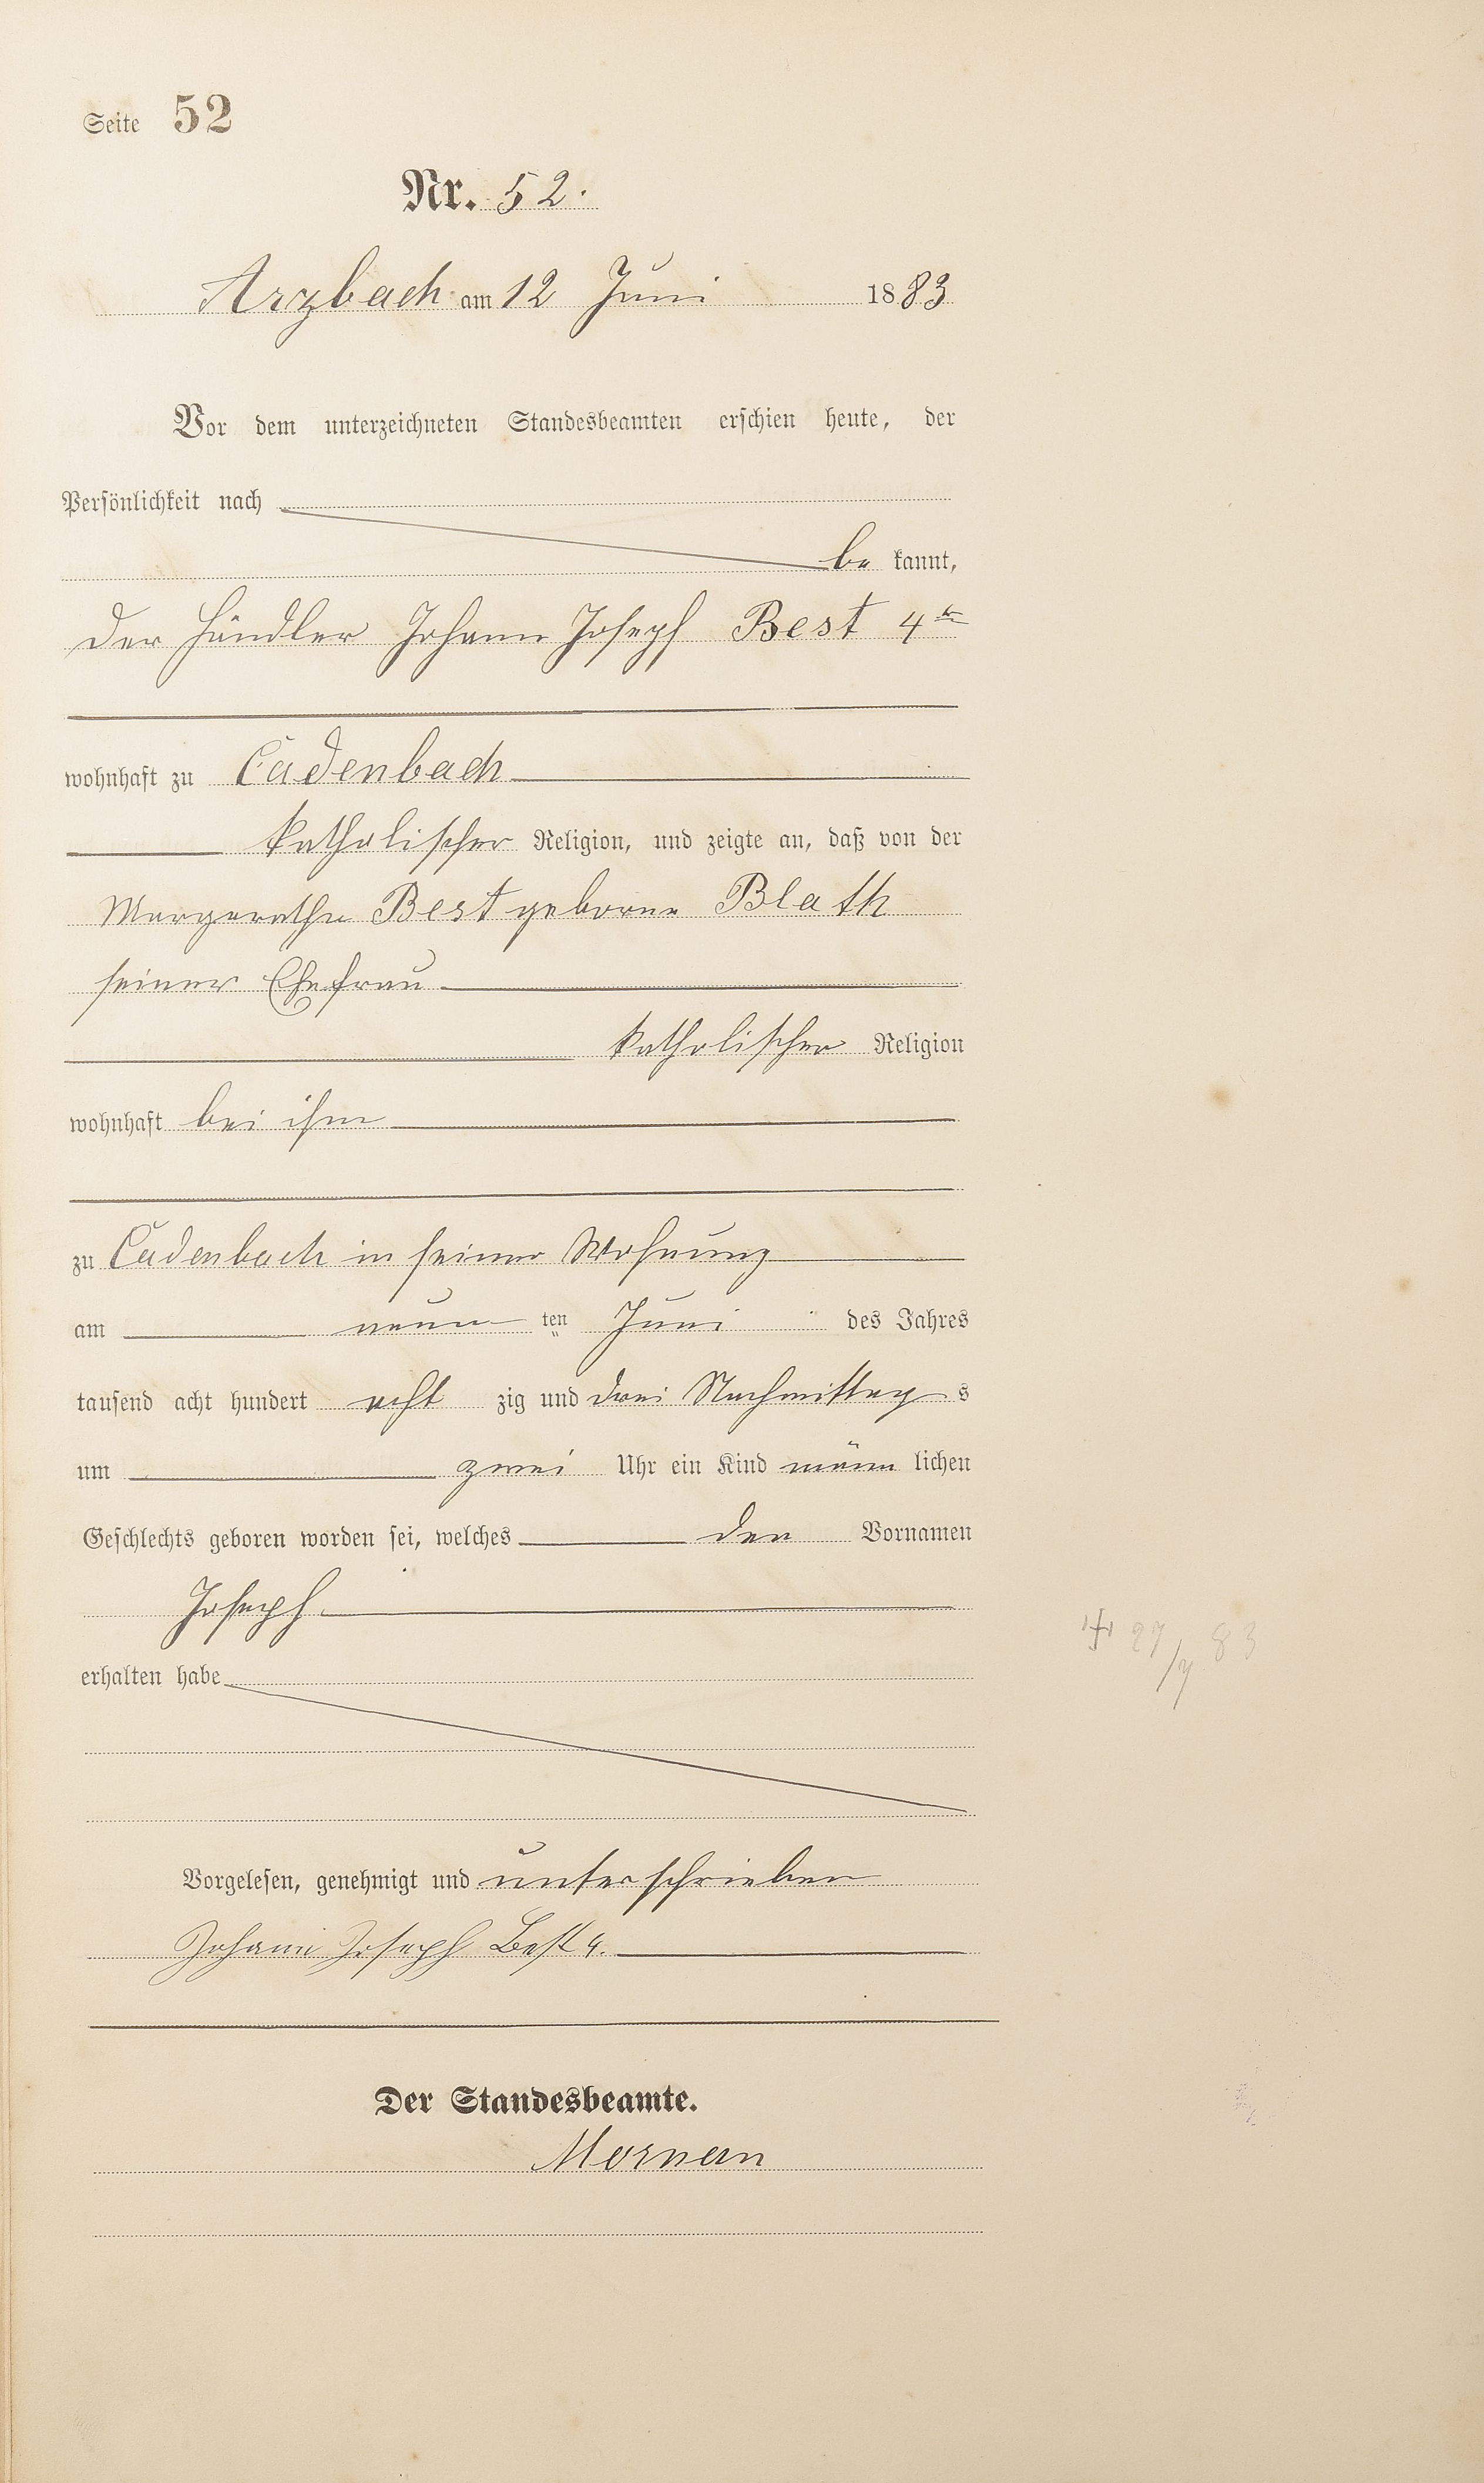 Seite 52
Nr. 52.
Arzbach am 12 Juni 1883
Vor dem unterzeichneten Standesbeamten erschien heute, der
Persönlichkeit nach
be kannt,
der Händler Johann Joseph Best 4te
wohnhaft zu Cadenbach
katholischer Religion, und zeigte an, daß von der
Margarethe Best geborne Blath
seiner Ehefrau
katholischer Religion
wohnhaft bei ihm
zu Cadenbach in seiner Wohnung
am neun ten Juni des Jahres
tausend acht hundert acht zig und drei Nachmittag s
um zwei Uhr ein Kind männ lichen
Geschlechts geboren worden sei, welches den Vornamen
Joseph
erhalten habe
Vorgelesen, genehmigt und unterschrieben
Johann Joseph Best 4.
Der Standesbeamte.
+ 27/7 83